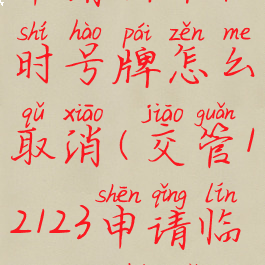 shí hào pái zěn me
时号牌怎么
qǔ xiāo jiāo guǎn
取消(交管1
shēn qǐng lín
2123申请临